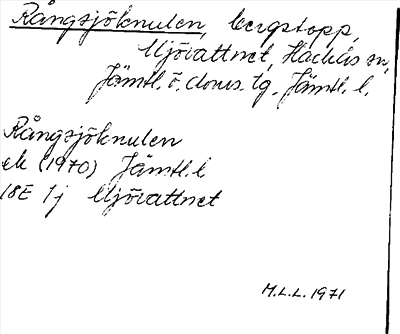 Rångsjöknulen, bergstopp,
Mjövattnet, Hackås sn,
Jämtl. ö. doms. tg., Jämtl. l.
Rångsjöknulen
ek (1970) Jämtl. l
18E 1j Mjövattnet
M.L.L. 1971